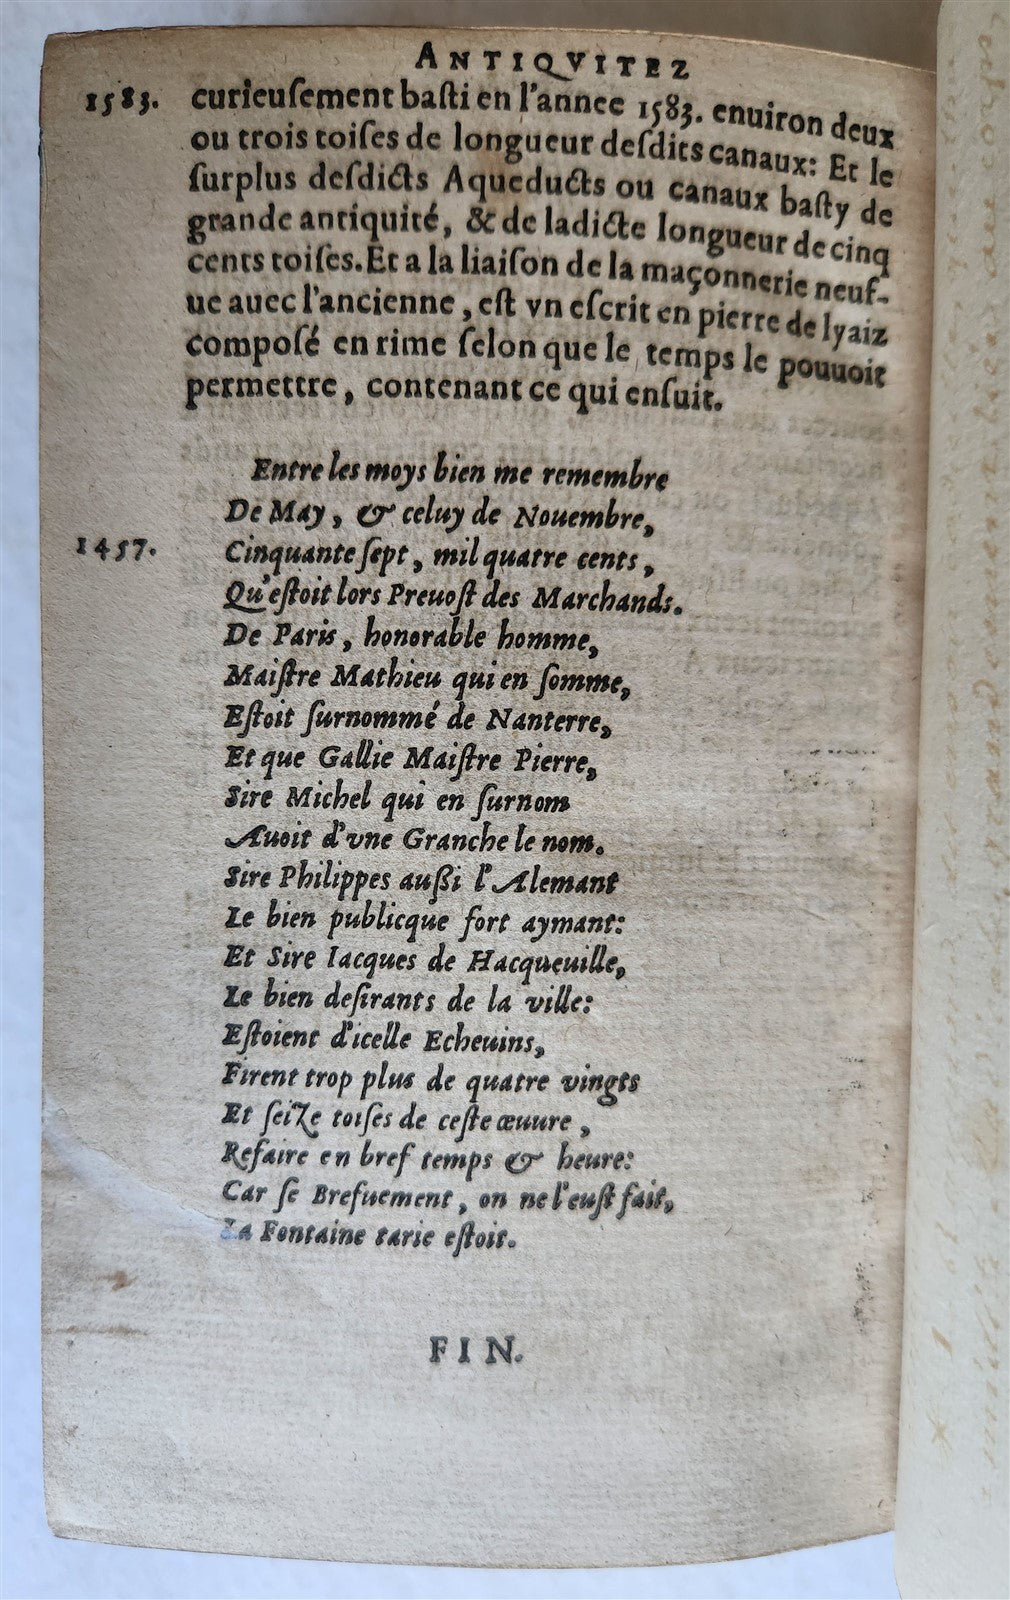 ANTIQVITEZ
1583. curieuſement baſti en l'annee 1583. enuiron deux
ou trois toiſes de longueur deſdits canaux: Et le
ſurplus deſdicts Aqueducts ou canaux baſty de
grande antiquité, & de ladicte longueur de cinq
cents toiſes. Et a la liaiſon de la maçonnerie neuf-
ue auec l'ancienne, eſt vn eſcrit en pierre de lyaiz
compoſé en rime ſelon que le temps le pouuoit
permettre, contenant ce qui enſuit.
Entre les moys bien me remembre
De May, & celuy de Nouembre,
1457. Cinquante ſept, mil quatre cents,
Qu'eſtoit lors Preuoſt des Marchands.
De Paris, honorable homme,
Maiſtre Mathieu qui en ſomme,
Eſtoit ſurnommé de Nanterre,
Et que Gallie Maiſtre Pierre,
Sire Michel qui en ſurnom
Auoit d'vne Granche le nom.
Sire Philippes außi l'Alemant
Le bien publicque fort aymant:
Et Sire Iacques de Hacqueuille,
Le bien deſirants de la ville:
Eſtoient d'icelle Echeuins,
Firent trop plus de quatre vingts
Et ſeize toiſes de ceſte œuure,
Refaire en bref temps & heure:
Car ſe Brefuement, on ne l'euſt fait,
La Fontaine tarie eſtoit.
FIN.